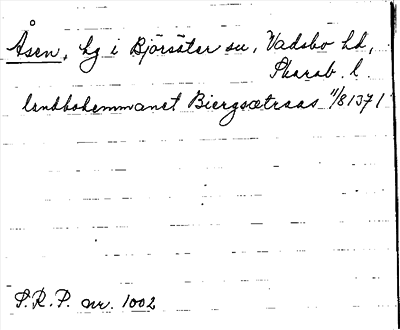 Åsen, hg i Björsäter sn, Vadsbo hd,
Skarab. l.
landbohemmanet Biergsætraas 11/8 1371
S.R.P. nr. 1002